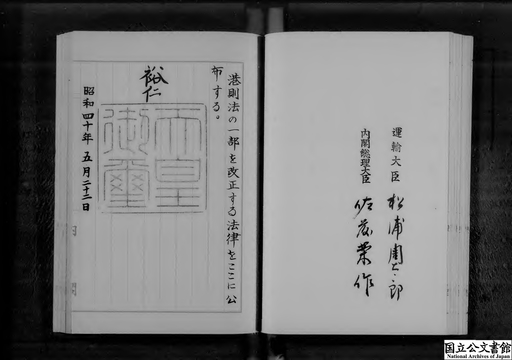 運輸大臣 松浦周太郎
内閣総理大臣 佐藤栄作
港則法の一部を改正する法律をここに公
布する。
裕仁
天皇
御璽
昭和四十年五月二十二日
国立公文書館
National Archives of Japan